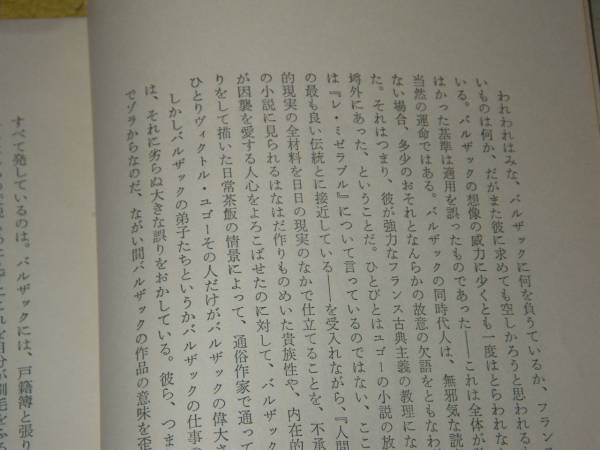 われわれはみな、バルザックに何を負うているか、フランス
いものは何か、だがまた彼に求めても空しかろうと思われる
いる。バルザックの想像の威力に少くとも一度はとらわれな
はかった基準は適用を誤ったものであった——これは全体が
当然の運命ではある。バルザックの同時代人は、無邪気な読
ない場合、多少のおそれとなんらかの故意の欠語をともなわ
た。それはつまり、彼が強力なフランス古典主義の教理にな
埓外にあった、ということだ。ひとびとはユゴーの小説の放
は『レ・ミゼラブル』について言っているのではない、ここ
の最も良い伝統とに接近している——を受入れながら、『人間
的現実の全材料を日日の現実のなかで仕立てることを、不承
の小説に見られるはなはだ作りものめいた貴族性や、内在的
が因襲を愛する人心をよろこばせたのに対して、バルザック
りをして描いた日常茶飯の情景によって、通俗作家で通って
ひとりヴィクトル・ユゴーその人だけがバルザックの偉大さ
しかしバルザックの弟子たちというかバルザックの仕事の
は、それに劣らぬ大きな誤りをおかしている。彼ら、つま
でゾラからなのだ、ながい間バルザックの作品の意味を歪
すべて発しているのは。バルザックには、戸籍簿と張り